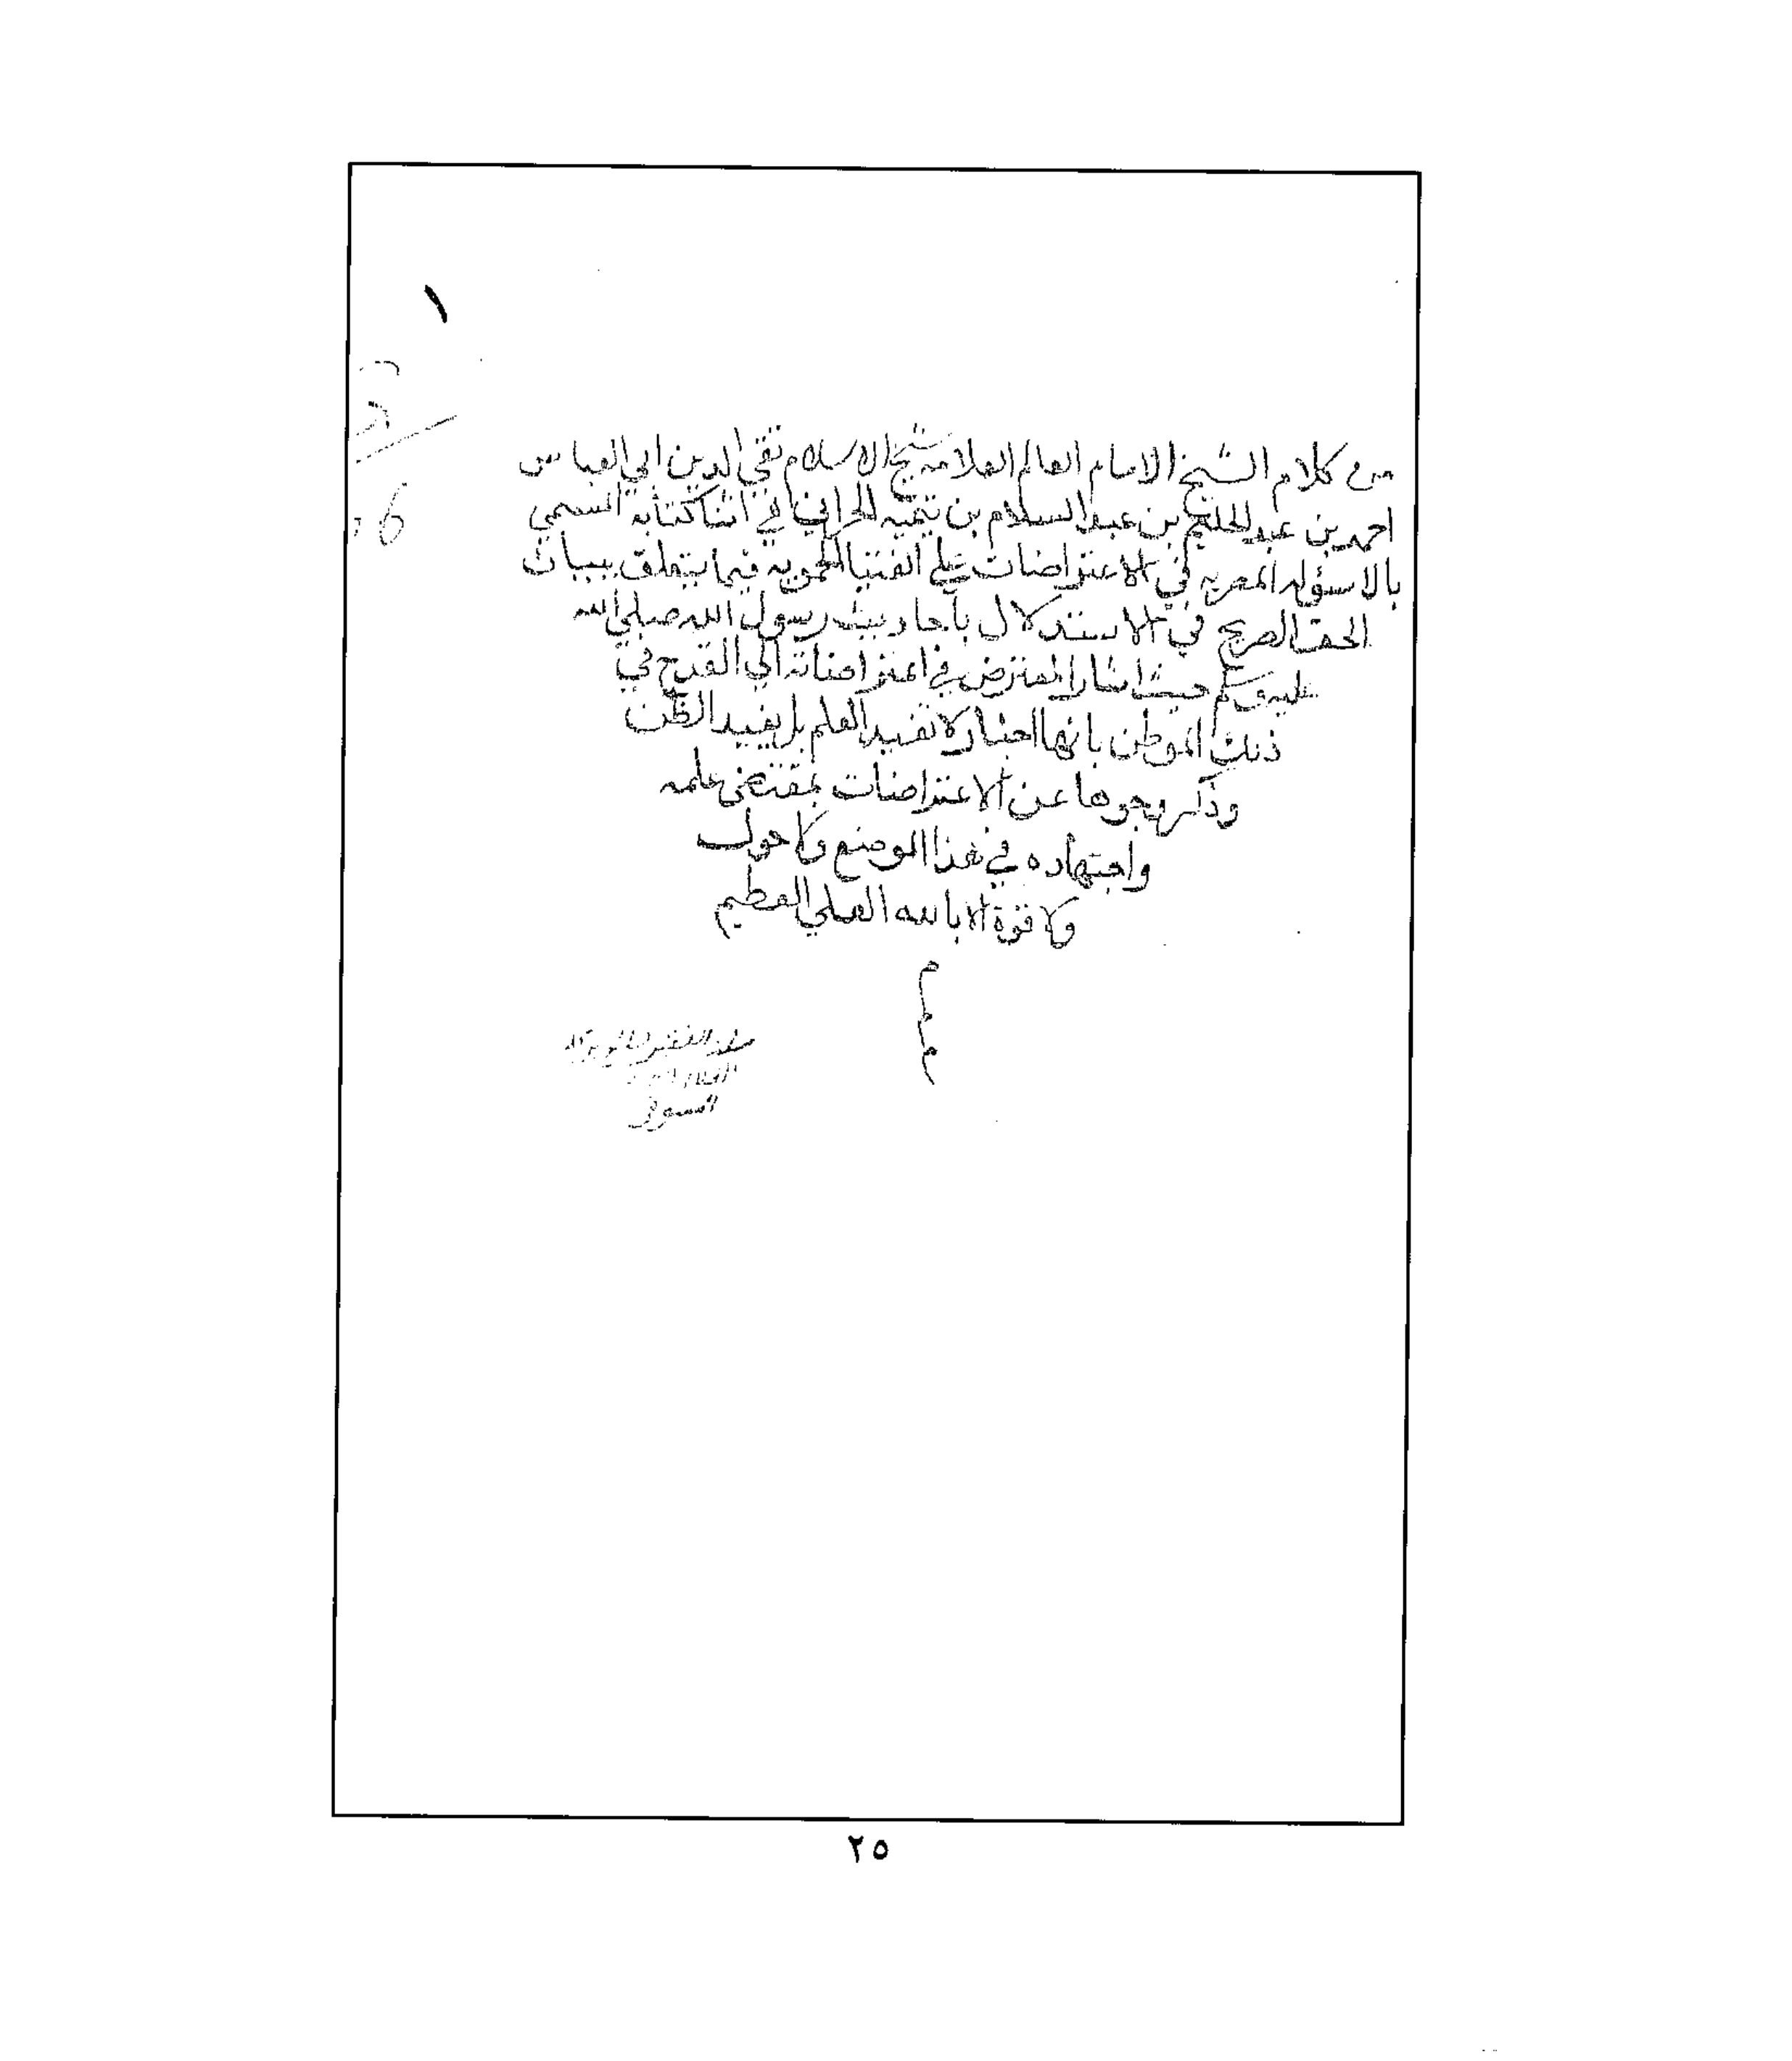 ١
6
من كلام الشيخ الامام العالم العلامه شيخ الاسلام تقي الدين ابي العباس
احمد بن عبد الحليم بن عبد السلام بن تيميه الحراني في اثنا كتابه المسمي
بالاسؤله المصريه في الاعتراضات علي الفتيا الحمويه فيما يتعلق ببيان
الحق الصريح في الاستدلال باحاديث رسول الله صلي الله
عليه وسلم حيث اشار المعترض في اعتراضاته الي القدح في
ذلك الموطن بانها اخبار لا تفيد العلم بل يفيد الظن
وذكر وجوها عن الاعتراضات بمقتضى علمه
واجتهاده في هذا الموضع ولا حول
ولا قوة الا بالله العلي العظيم
م
م
م
٢٥